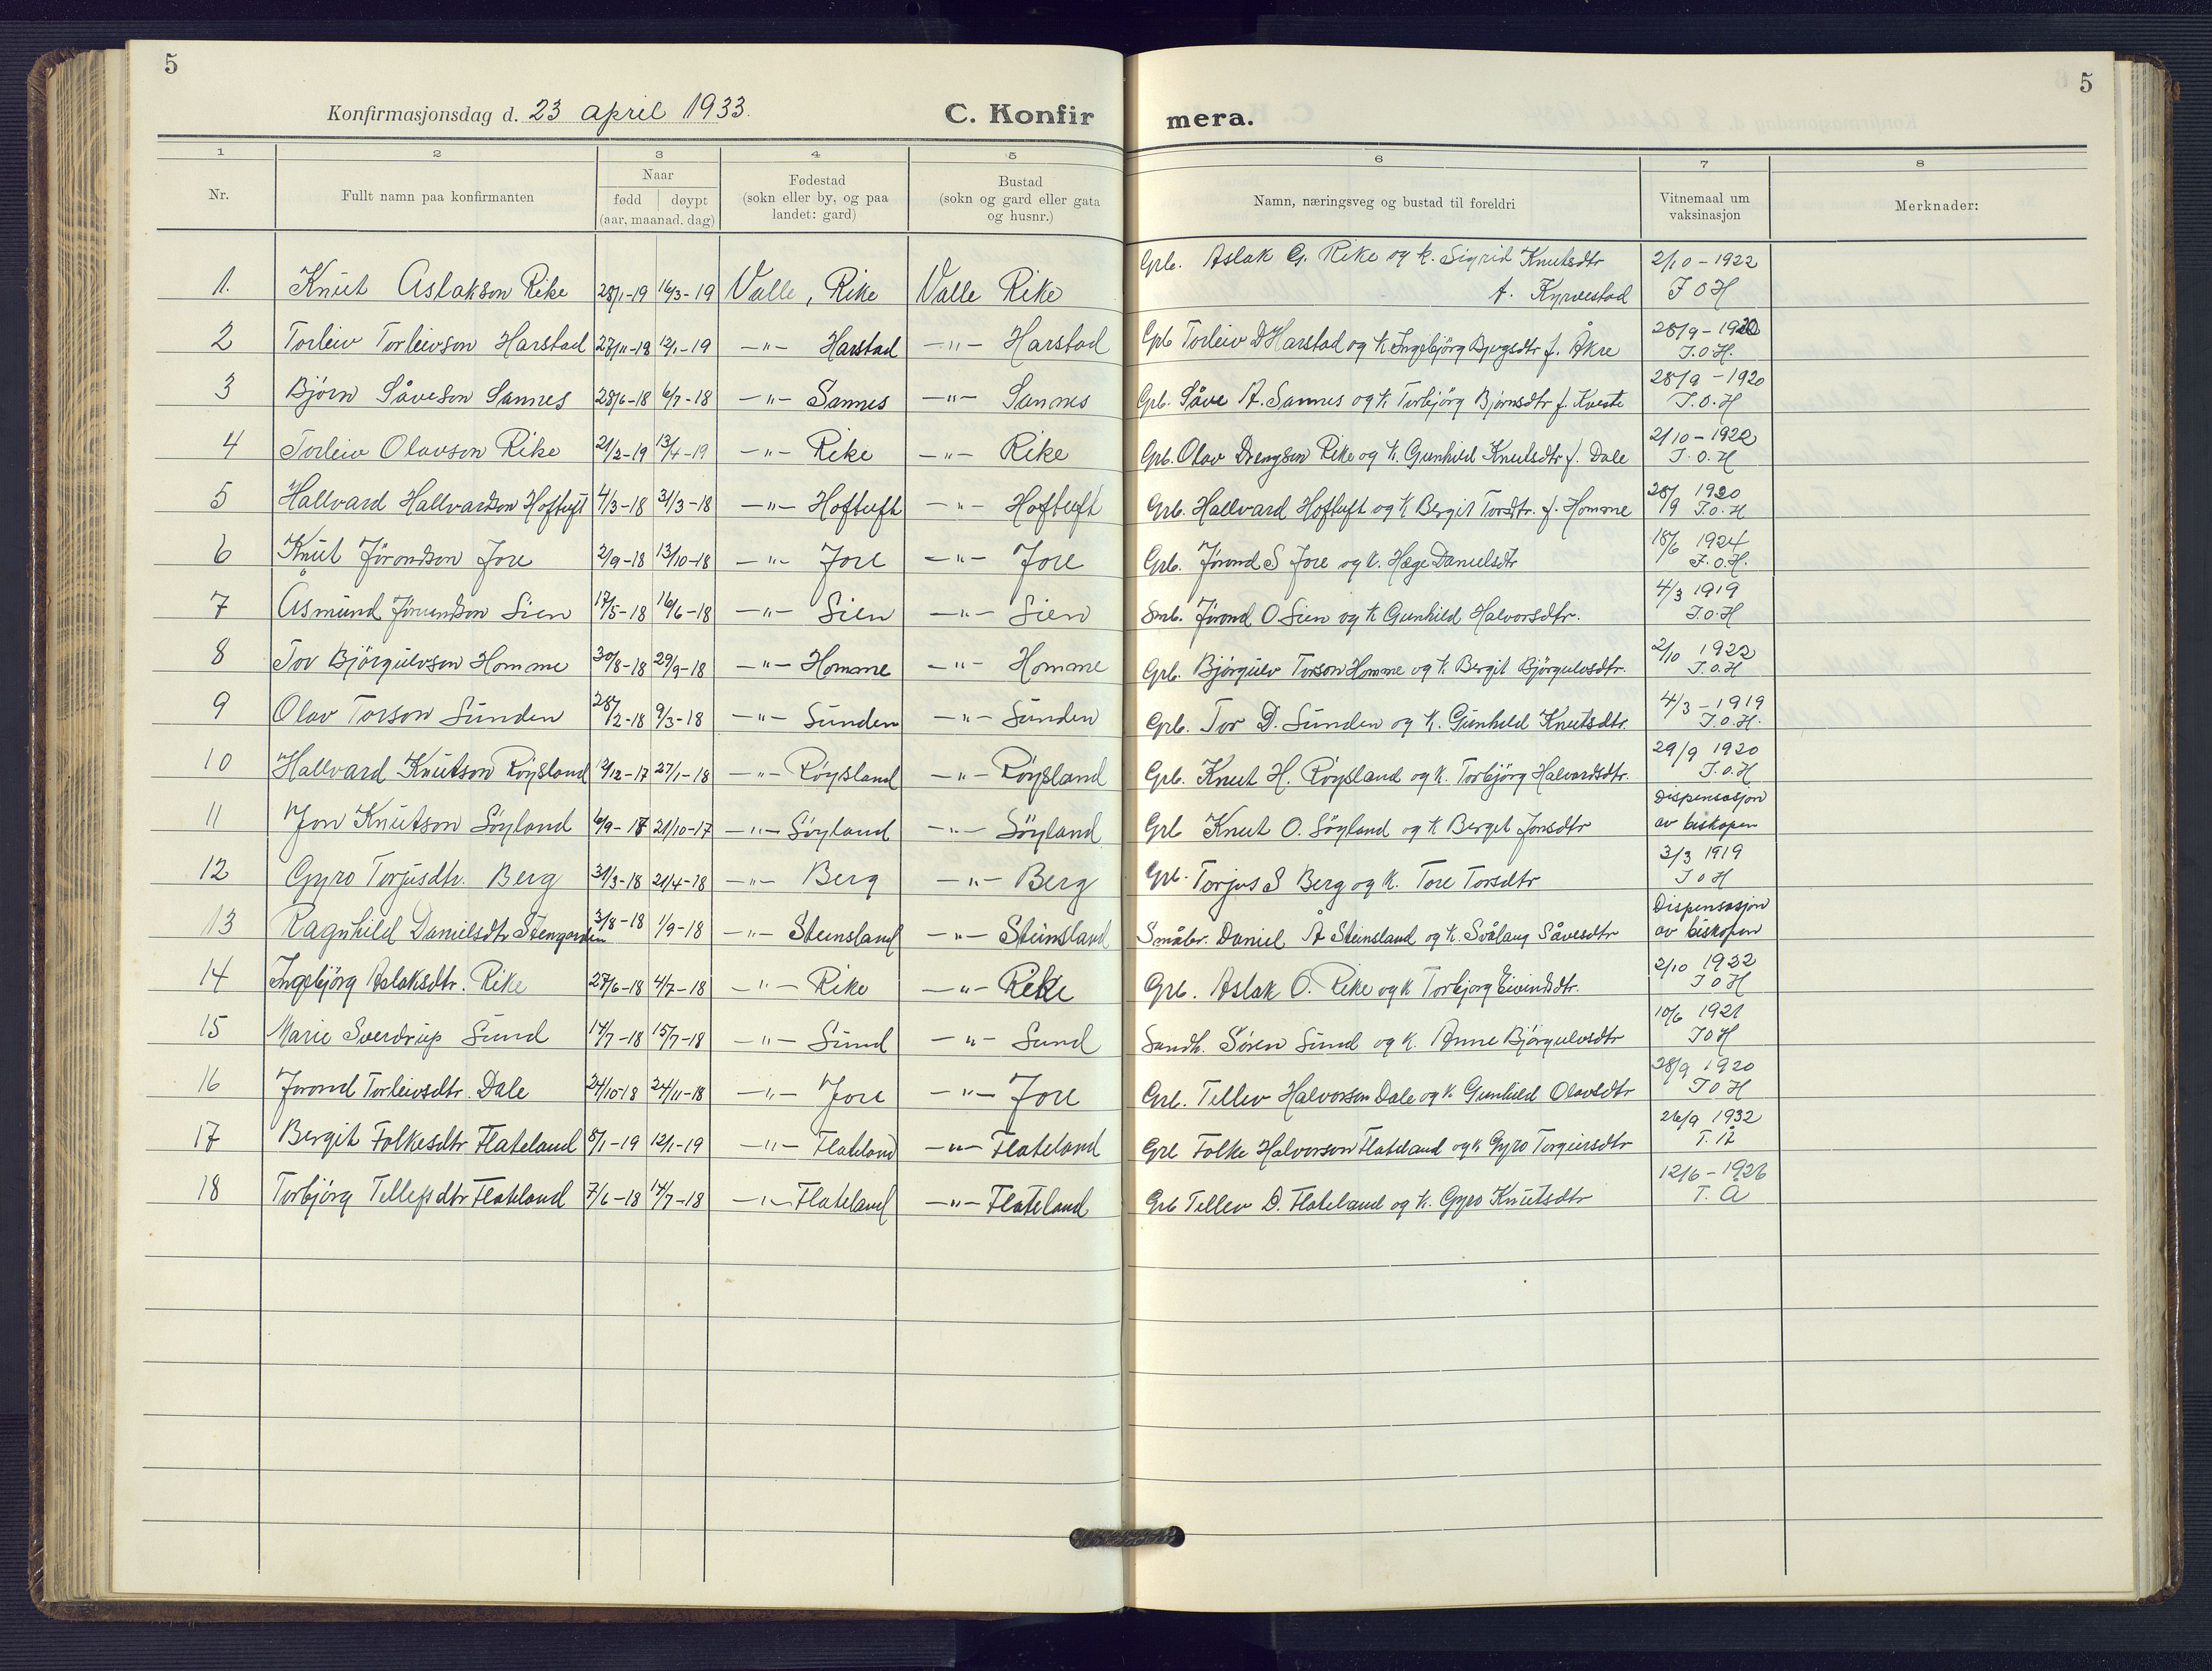 5
5
Konfirmasjonsdag d. 23 april 1933.
C. Konfirmera.
1 2 3 4 5 6 7 8
Nr. | Fullt namn paa konfirmanten | Naar fødd døypt (aar, maanad, dag) | Fødestad (sokn eller by, og paa landet: gard) | Bustad (sokn og gard eller gata og husnr.) | Namn, næringsveg og bustad til foreldri | Vitnemaal um vaksinasjon | Merknader:
1. Knut Aslakson Rike 28/1-19 16/3-19 Valle, Rike Valle Rike Grb. Aslak G. Rike og k. Sigrid Knutsdtr f. Kyrvestad 2/10-1922 J O H
2 Torleiv Torleivson Harstad 27/11-18 12/1-19 -"- Harstad -"- Harstad Grb Torleiv D Harstad og k. Ingebjörg Bjugsdtr f. Åkre 28/9-1920 J.O.H.
3 Björn Såveson Sannes 28/6-18 6/7-18 -"- Sannes -"- Sannes Grb. Såve A. Sannes og k Torbjörg Björnsdtr f. Kveste 28/9-1920 J.O.H
4 Torleiv Olavson Rike 21/2-19 13/4-19 -"- Rike -"- Rike Grb. Olav Drengson Rike og k. Gunhild Knutsdtr f. Dale 2/10-1922 J.O.H
5 Hallvard Hallvardson Hoftuft 4/3-18 31/3-18 -"- Hoftuft -"- Hoftuft Grb. Hallvard Hoftuft og k Bergit Torsdtr. f. Homme 28/9 1920 J.O.H
6 Knut Jörondson Jore 2/9-18 13/10-18 -"- Jore -"- Jore Grb. Jörond S Jore og k. Hæge Danielsdtr 18/6 1924 J.O.H.
7 Åsmund Jörundson Lien 17/5-18 16/6-18 -"- Lien -"- Lien Smb. Jörond O Lien og k Gunhild Halvorsdtr. 4/3 1919 J.O.H
8 Tor Björgulvson Homme 30/8-18 29/9-18 -"- Homme -"- Homme Grb. Björgulv Torson Homme og k. Bergit Björgulvsdtr. 2/10 1922 J.O.H
9 Olav Torson Sunden 28/2-18 9/3-18 -"- Sunden -"- Sunden Grb. Tor D. Sunden og k. Gunhild Knutsdtr. 4/3-1919 J.O.H.
10 Hallvard Knutson Röysland 12/12-17 27/1-18 -"- Röysland -"- Röysland Grb. Knut H. Röysland og k. Torbjörg Halvardsdtr. 29/9 1920 J.O.H
11 Jon Knutson Löyland 6/9-17 21/10-17 -"- Löyland -"- Löyland Grb Knut O. Löyland og k Berget Jonsdtr Dispensasjon av biskopen
12 Gyro Torjusdtr. Berg 31/3-18 21/4-18 -"- Berg -"- Berg Grb. Torjus S Berg og k. Tore Torsdtr 3/3 1919 J O H
13 Ragnhild Danielsdtr Stengarden 3/8-18 1/9-18 -"- Steinsland -"- Steinsland Småbr. Daniel Å Steinsland og k. Svålaug Såvesdtr Dispensasjon av biskopen
14 Ingebjörg Aslaksdtr. Rike 27/6-18 4/7-18 -"- Rike -"- Rike Grb. Aslak O. Rike og k Torbjorg Eivindsdtr. 2/10 1922 J O H
15 Marie Sverdrup Sund 14/7-18 15/7-18 -"- Sund -"- Sund Landh. Sören Sund og k. Anne Björgulvsdtr 10/6 1921 J O H
16 Jorond Torleivsdtr. Dale 24/10-18 24/11-18 -"- Jore -"- Jore Grb. Tellev Halvorson Dale og k. Gunhild Olavsdtr 28/9 1920 J O H
17 Bergit Folkesdtr Flateland 5/1-19 12/1-19 -"- Flateland -"- Flateland Grb Folke Halvorson Flateland og k Gyro Torgeirsdtr 26/9 1932 T. Å
18 Torbjörg Tellefsdtr Flateland 7/6-18 14/7-18 -"- Flateland -"- Flateland Grb Tellev D. Flateland og k. Gyro Knutsdtr 12/6-1926 T. Å